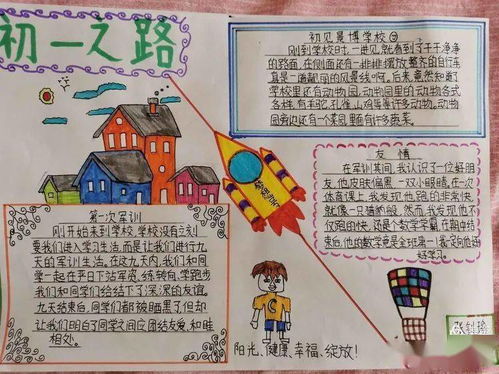 初一之路
初见景博学校
刚到学校时,一进见就看到了干干净净
的路面,在侧面还有一排排摆放整齐的自行车
真是一道靓丽的风景线啊。后来,竟然知道了
学校里还有动物园,动物园里的动物各式
各样,有羊驼、孔雀、山鸡等等许多动物。动物
园旁边还有一个菜园,里面有许多蔬菜。
友情
在军训其间,我认识了一位好朋
友,他皮肤偏黑,一双小眼睛,在一次
体育课上,我发现他跑的非常快,
就像一只猎豹。然而,我发现他不
仅跑的快,还是个数学学霸,在期中结
束后,他的数学竟是全班第一,我要向他
好学习。
第一次军训
刚开始来到学校,学校没有立刻
要我们进入学习生活,而是让我们进行九
天的军训生活。在这九天内,我们和同
学一起在平日下站军姿、练转向、学跑步
我们和同学们给结下了深深的友谊。
九天结束后,同学们都被晒黑了但却
让我们明白了同学之间应团结友爱,和睦
相处。
阳光、健康、幸福、绽放!